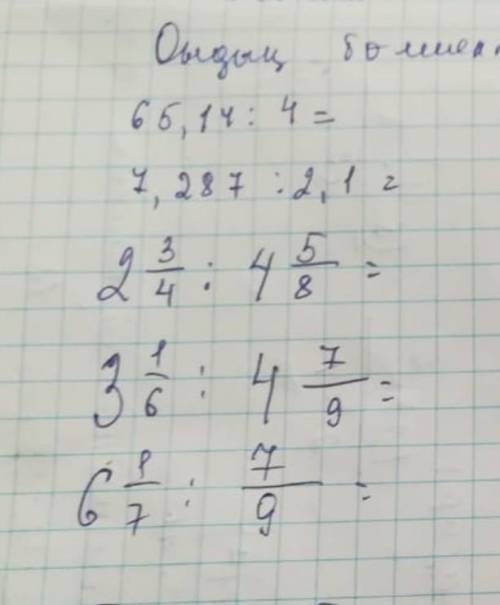 Ондық
65,14 : 4 =
7,287 : 2,1 =
2 3/4 : 4 5/8 =
3 1/6 : 4 7/9 =
6 1/7 : 7/9 =